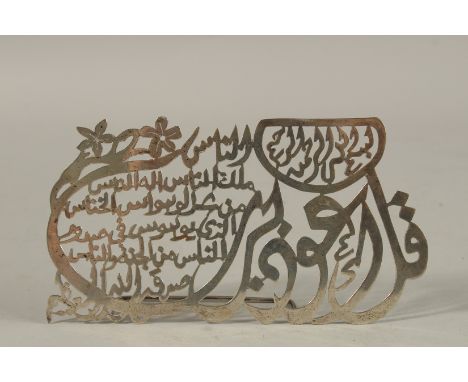 بسم الله الرحمن الرحيم
قل اعوذ برب
الناس
ملك الناس اله الناس
من شر الوسواس الخناس
الذي يوسوس في صدور
الناس من الجنة والناس
صدق الله